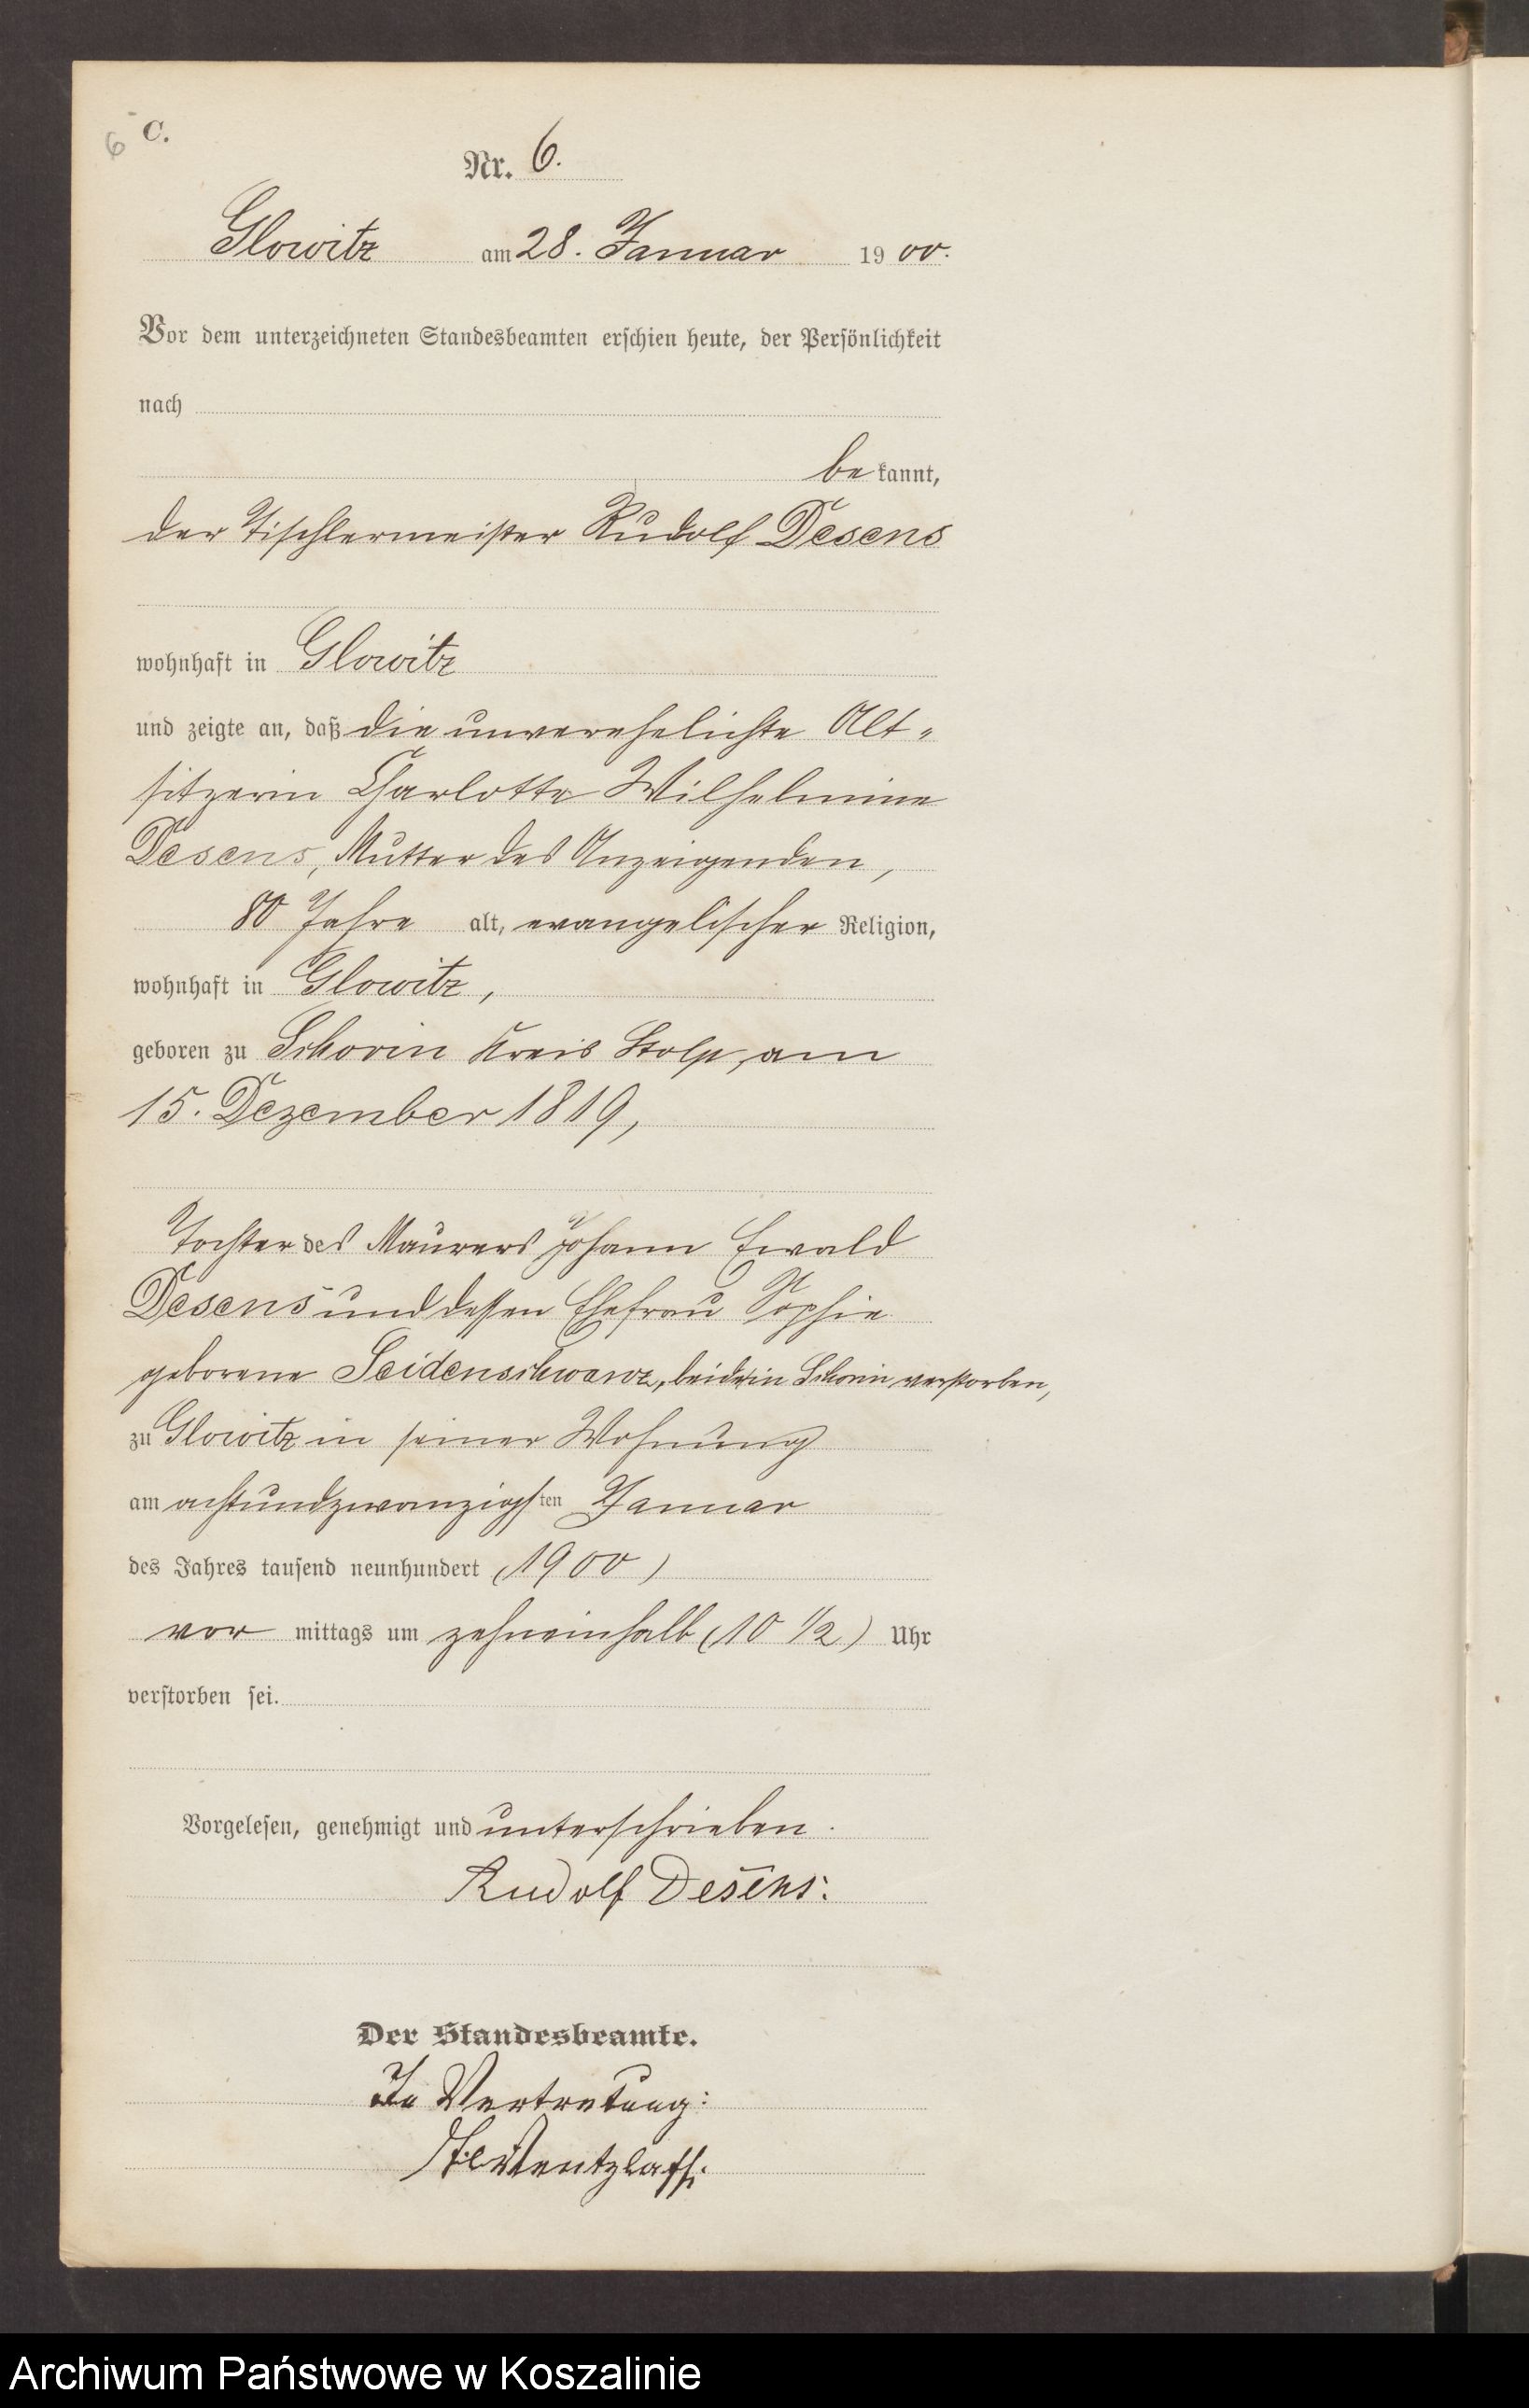 6
C.
Nr. 6.
Glowitz am 28. Januar 1900.
Vor dem unterzeichneten Standesbeamten erschien heute, der Persönlichkeit
nach
bekannt,
der Tischlermeister Rudolf Desens
wohnhaft in Glowitz
und zeigte an, daß die unverehelichte Alt-
sitzerin Charlotte Wilhelmine
Desens, Mutter des Anzeigenden,
80 Jahre alt, evangelischer Religion,
wohnhaft in Glowitz,
geboren zu Schorin Kreis Stolp, am
15. Dezember 1819,
Tochter des Maurers Johann Ewald
Desens und dessen Ehefrau Sophie
geborene Seidenschwarz, beide in Schorin verstorben,
zu Glowitz in seiner Wohnung
am achtundzwanzigsten Januar
des Jahres tausend neunhundert (1900)
vor mittags um zehneinhalb (10 1/2) Uhr
verstorben sei.
Vorgelesen, genehmigt und unterschrieben.
Rudolf Desens.
Der Standesbeamte.
In Vertretung:
Wentzlaff.
Archiwum Państwowe w Koszalinie